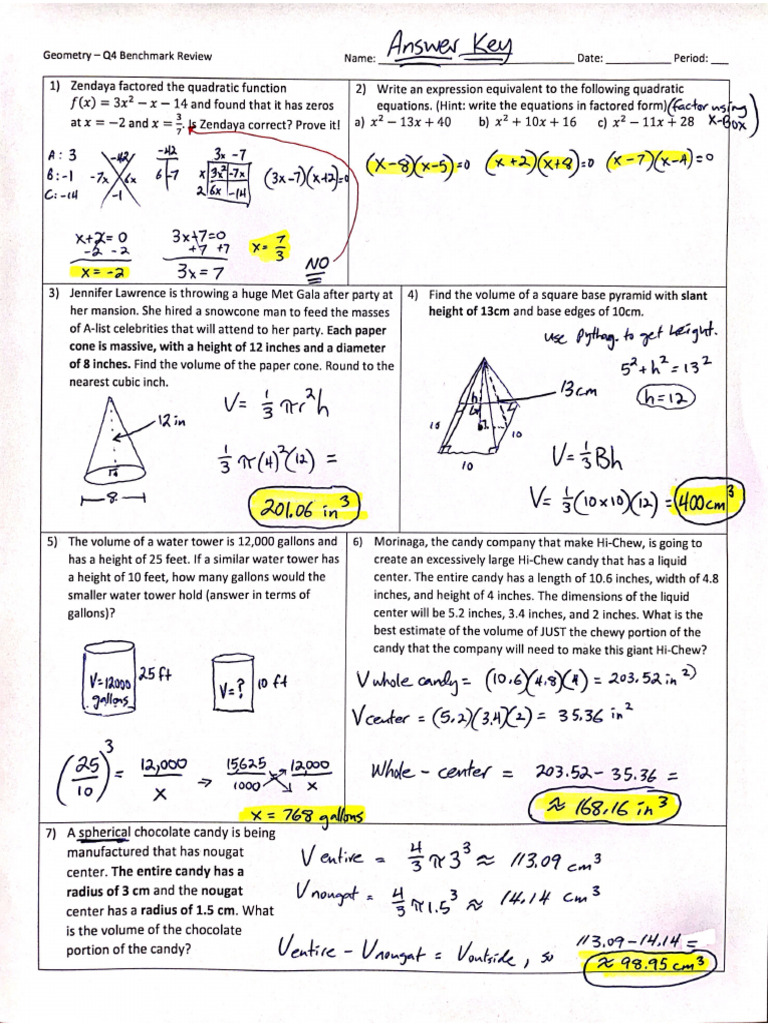 Answer Key
Geometry – Q4 Benchmark Review Name: Date: Period:
1) Zendaya factored the quadratic function
f(x) = 3x² − x − 14 and found that it has zeros
at x = −2 and x = 3/7. Is Zendaya correct? Prove it!
A: 3
B: -1
C: -14
-42
-7x 6x
-1
-42
6 -7
3x -7
x 3x² -7x
2 6x -14
(3x-7)(x+2)=0
x+2=0
-2 -2
x = -2
3x-7=0
+7 +7
3x = 7
x = 7/3
NO
2) Write an expression equivalent to the following quadratic
equations. (Hint: write the equations in factored form) (factor using
X-Box)
a) x² − 13x + 40 b) x² + 10x + 16 c) x² − 11x + 28
(x-8)(x-5)=0 (x+2)(x+8)=0 (x-7)(x-4)=0
3) Jennifer Lawrence is throwing a huge Met Gala after party at
her mansion. She hired a snowcone man to feed the masses
of A-list celebrities that will attend to her party. Each paper
cone is massive, with a height of 12 inches and a diameter
of 8 inches. Find the volume of the paper cone. Round to the
nearest cubic inch.
12 in
8
V = 1/3 πr²h
1/3 π(4)²(12) =
201.06 in³
4) Find the volume of a square base pyramid with slant
height of 13cm and base edges of 10cm.
use Pythag. to get height.
5² + h² = 13²
h = 12
13cm
h
10
10
10
V = 1/3 Bh
V = 1/3 (10x10)(12) = 400cm³
5) The volume of a water tower is 12,000 gallons and
has a height of 25 feet. If a similar water tower has
a height of 10 feet, how many gallons would the
smaller water tower hold (answer in terms of
gallons)?
V=12000
gallons
25 ft
V=?
10 ft
(25/10)³ = 12,000/x → 15625/1000 = 12000/x
x = 768 gallons
6) Morinaga, the candy company that make Hi-Chew, is going to
create an excessively large Hi-Chew candy that has a liquid
center. The entire candy has a length of 10.6 inches, width of 4.8
inches, and height of 4 inches. The dimensions of the liquid
center will be 5.2 inches, 3.4 inches, and 2 inches. What is the
best estimate of the volume of JUST the chewy portion of the
candy that the company will need to make this giant Hi-Chew?
V whole candy = (10.6)(4.8)(4) = 203.52 in²)
V center = (5.2)(3.4)(2) = 35.36 in²
Whole - center = 203.52 - 35.36 =
≈ 168.16 in³
7) A spherical chocolate candy is being
manufactured that has nougat
center. The entire candy has a
radius of 3 cm and the nougat
center has a radius of 1.5 cm. What
is the volume of the chocolate
portion of the candy?
V entire = 4/3 π3³ ≈ 113.09 cm³
V nougat = 4/3 π1.5³ ≈ 14.14 cm³
Ventire - Vnougat = Voutside, so 113.09-14.14 =
≈ 98.95 cm³